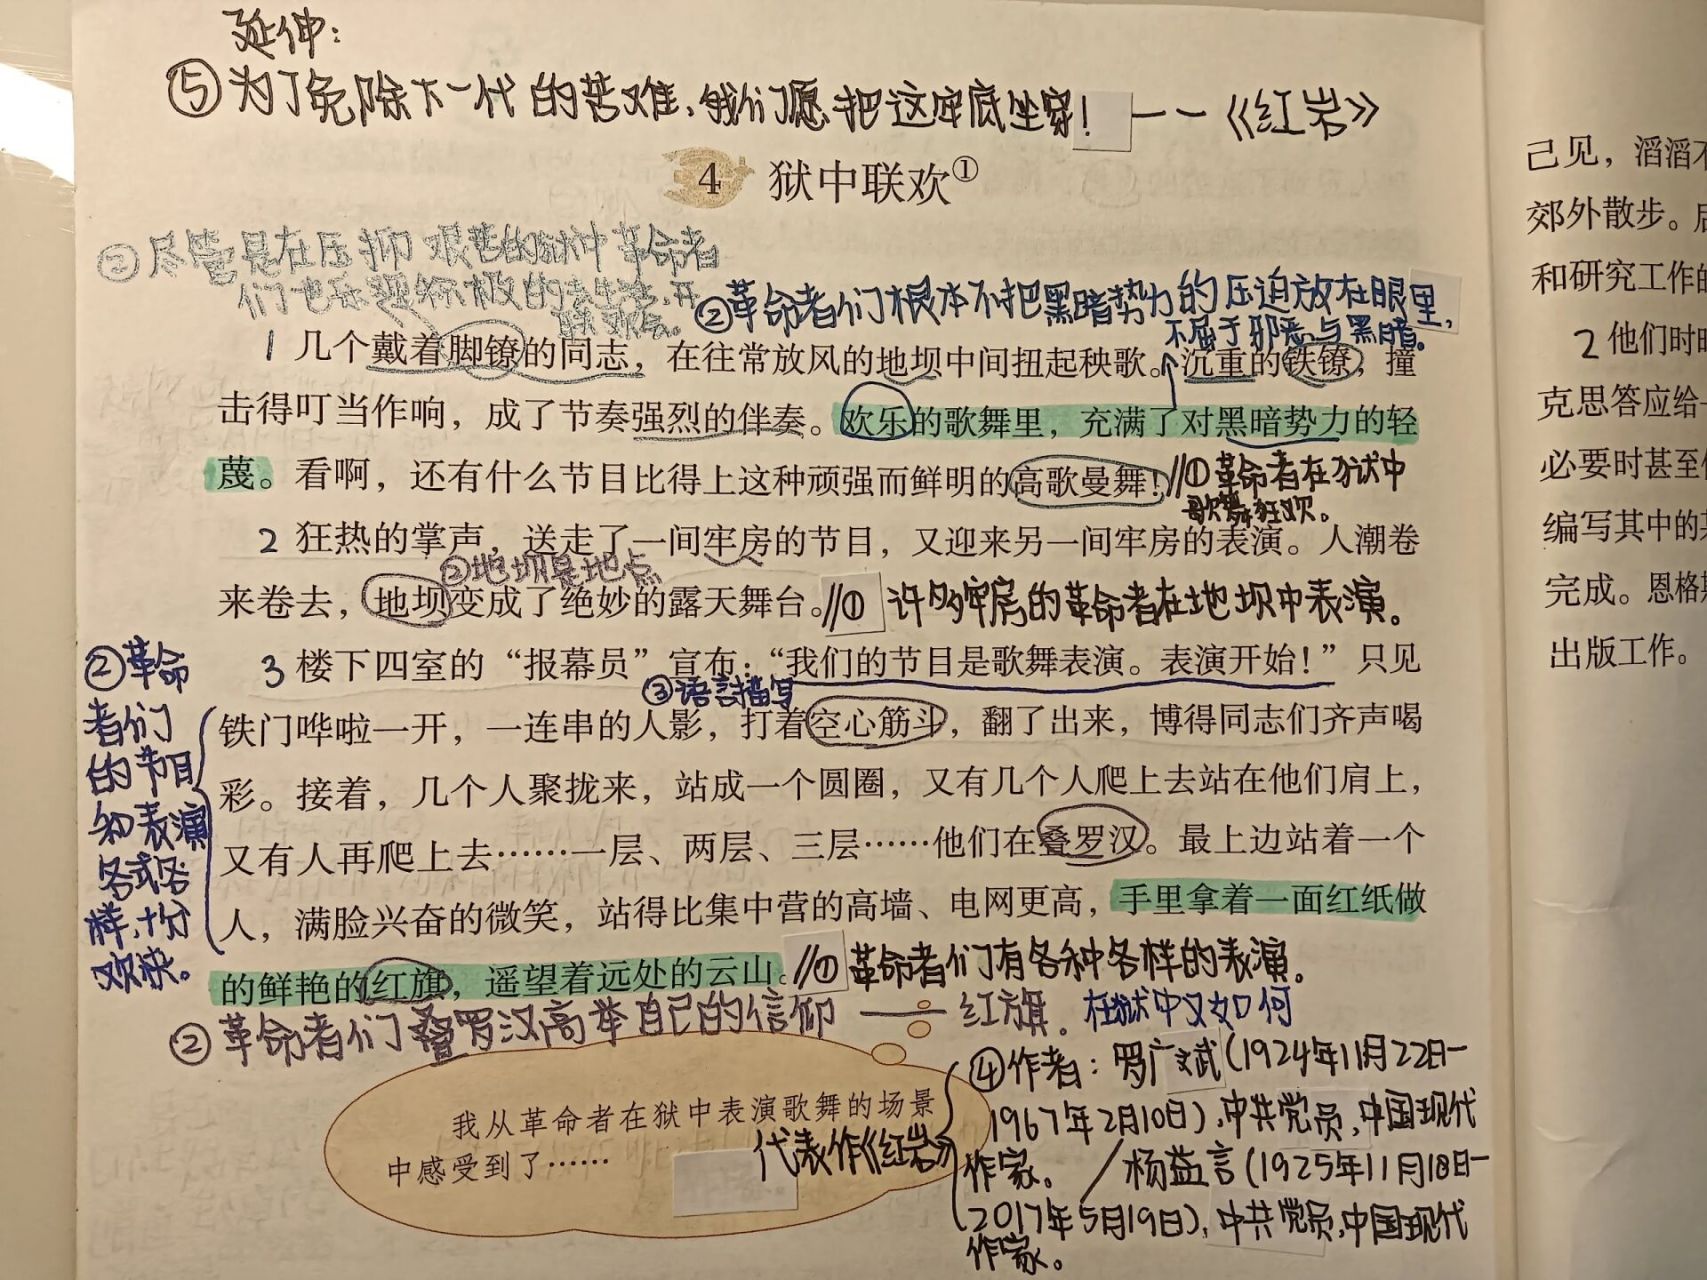 延伸：
⑤为了免除下一代的苦难，我们愿把这牢底坐穿！——《红岩》
4 狱中联欢①
②尽管是在压抑艰苦的狱中革命者
们也乐观积极的去生活，开
联欢会。
②革命者们根本不把黑暗势力的压迫放在眼里，
不屈于邪恶与黑暗。
1 几个戴着脚镣的同志，在往常放风的地坝中间扭起秧歌。沉重的铁镣，撞
击得叮当作响，成了节奏强烈的伴奏。欢乐的歌舞里，充满了对黑暗势力的轻
蔑。看啊，还有什么节目比得上这种顽强而鲜明的高歌曼舞！//①革命者在狱中
歌舞狂欢。
2 狂热的掌声，送走了一间牢房的节目，又迎来另一间牢房的表演。人潮卷
②地坝是地点
来卷去，地坝变成了绝妙的露天舞台。//① 许多牢房的革命者在地坝中表演。
3 楼下四室的“报幕员”宣布：“我们的节目是歌舞表演。表演开始！”只见
③语言描写
铁门哗啦一开，一连串的人影，打着空心筋斗，翻了出来，博得同志们齐声喝
彩。接着，几个人聚拢来，站成一个圆圈，又有几个人爬上去站在他们肩上，
又有人再爬上去……一层、两层、三层……他们在叠罗汉。最上边站着一个
人，满脸兴奋的微笑，站得比集中营的高墙、电网更高，手里拿着一面红纸做
的鲜艳的红旗，遥望着远处的云山。//①革命者们有各种各样的表演。
②革命
者们
的节目
和表演
各式各
样，十分
欢快。
②革命者们叠罗汉高举自己的信仰——红旗。在狱中又如何
我从革命者在狱中表演歌舞的场景
中感受到了……
代表作《红岩》
④作者：罗广斌(1924年11月22日－
1967年2月10日)，中共党员，中国现代
作家。/杨益言(1925年11月18日－
2017年5月19日)，中共党员，中国现代
作家。
己见，滔滔不
郊外散步。
和研究工作的
2 他们时
克思答应给
必要时甚至
编写其中的
完成。恩格斯
出版工作。